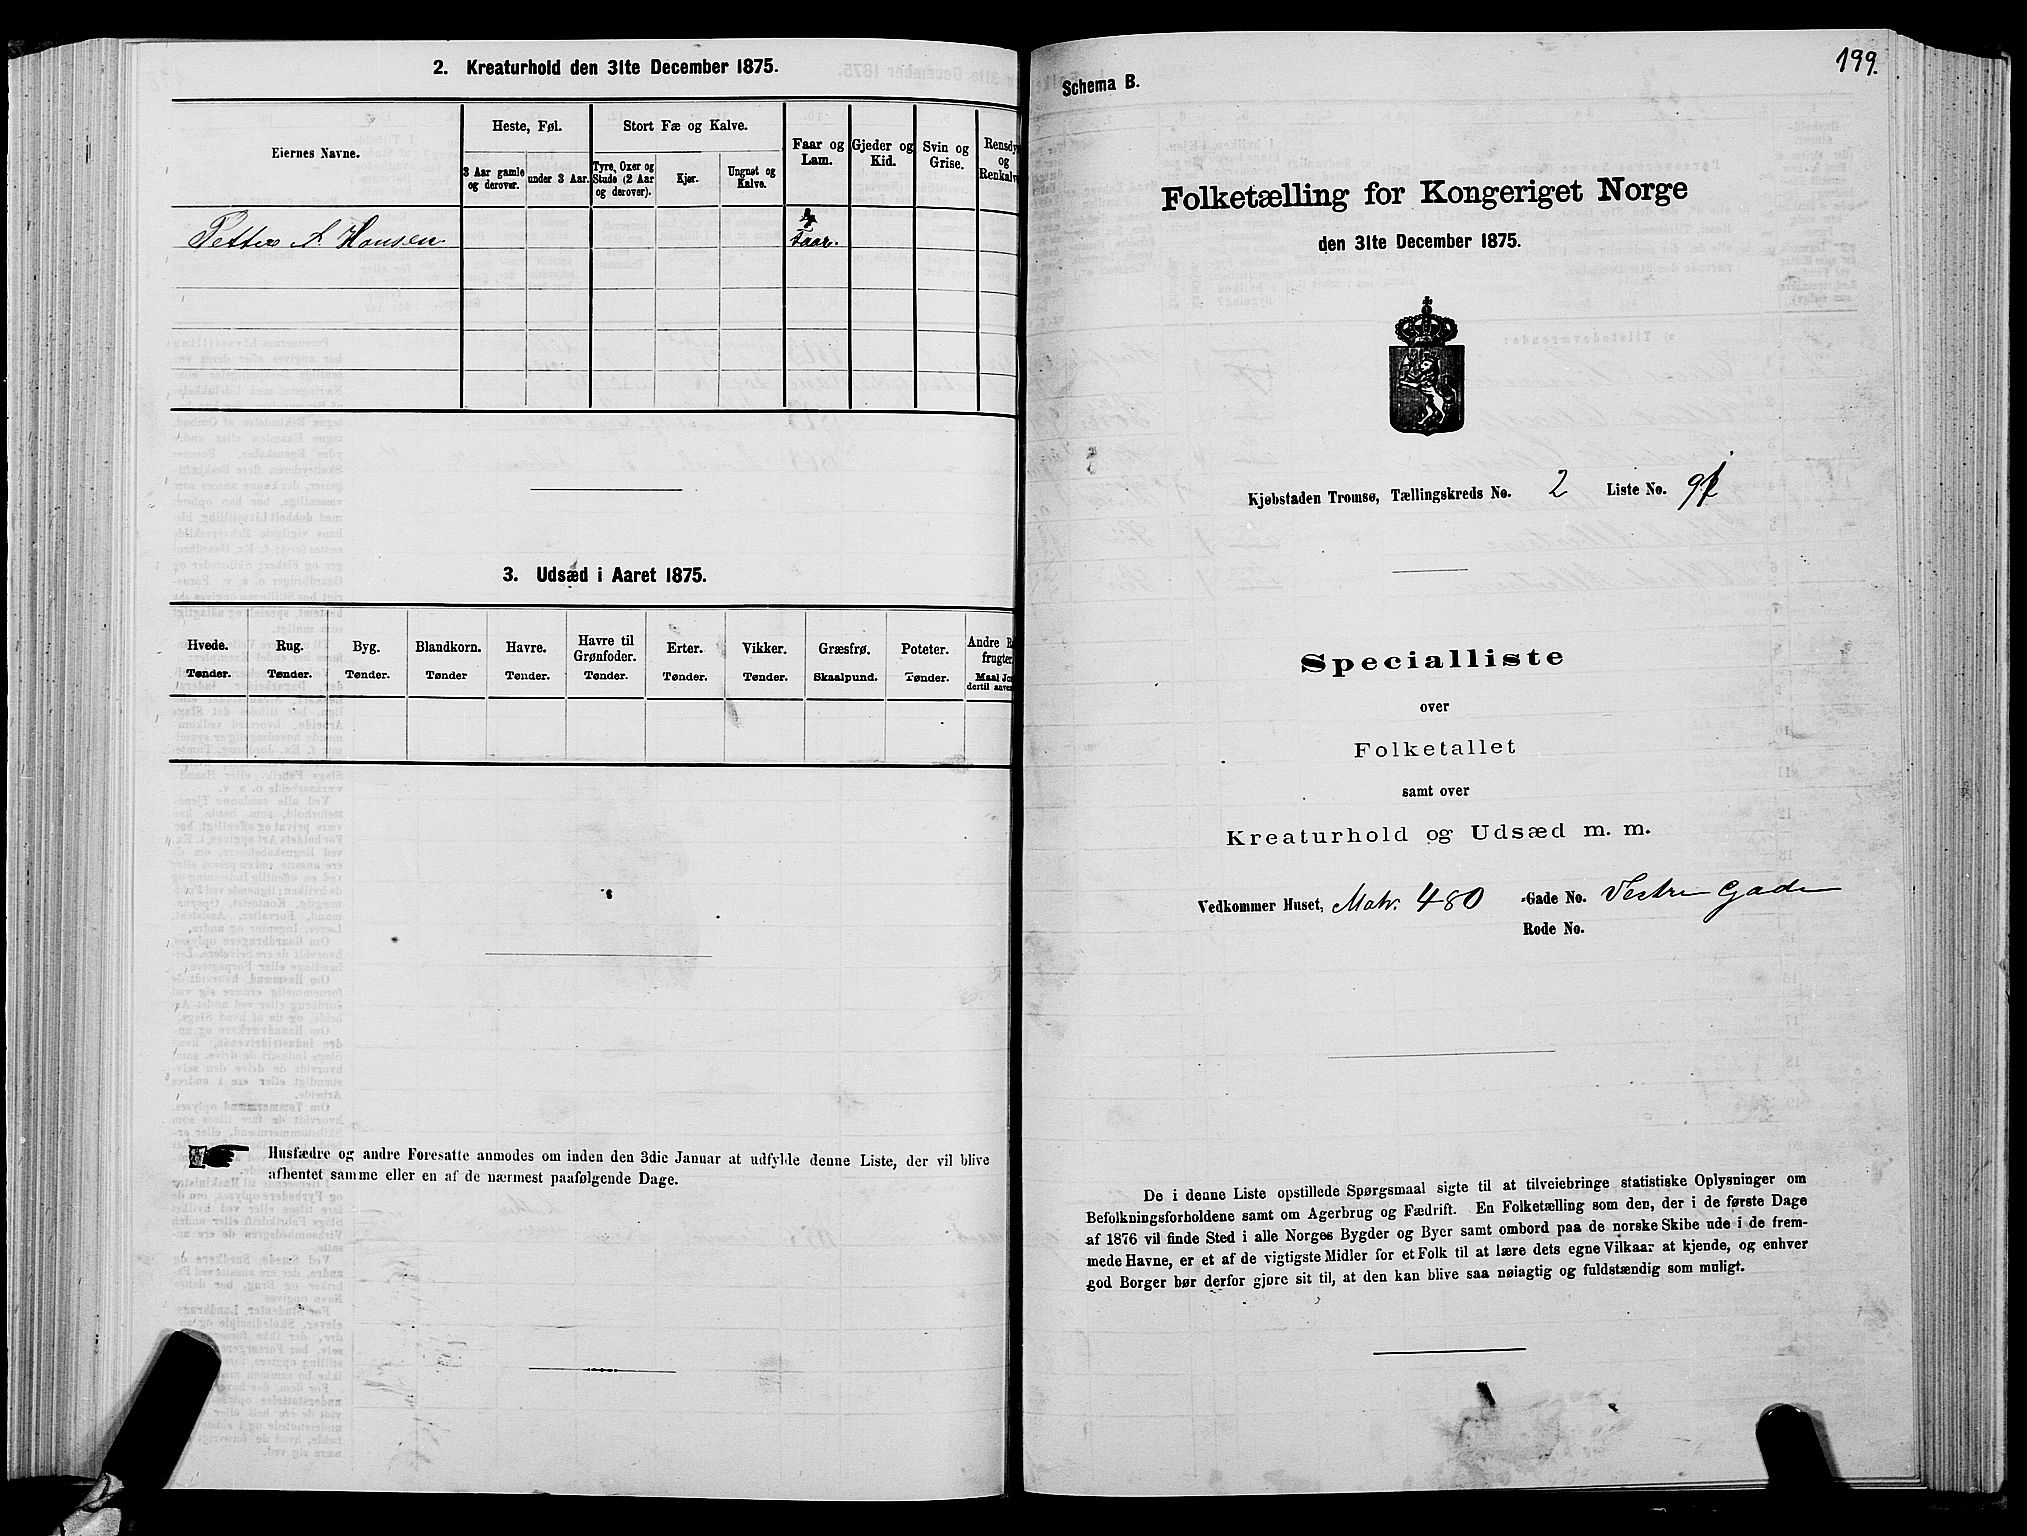 2. Kreaturhold den 31te December 1875.
Eiernes Navne.
Heste, Føl.
Stort Fæ og Kalve.
Faar og Lam.
Gjeder og Kid.
Svin og Grise.
Rensdy
og
Renkalv
3 Aar gamle og derover.
under 3 Aar.
Tyre, Oxer og Stude (2 Aar og derover).
Kjør.
Ungnøt og Kalve.
Petter A Hansen
faar.
3. Udsæd i Aaret 1875.
Hvede. Rug. Byg. Blandkorn. Havre. Havre til Grønfoder. Erter. Vikker. Græsfrø. Poteter. Andre R
frugter
Tønder. Tønder. Tønder. Tønder Tønder. Tønder. Tønder. Tønder. Skaalpund. Tønder. Maal Jo
dertil anven
Husfædre og andre Foresatte anmodes om inden den 3die Januar at udfylde denne Liste, der vil blive
afhentet samme eller en af de nærmest paafølgende Dage.
199.
Schema B.
Folketælling for Kongeriget Norge
den 31te December 1875.
Kjøbstaden Tromsø, Tællingskreds No. 2 Liste No.
Specialliste
over
Folketallet
samt over
Kreaturhold og Udsæd m. m.
Vedkommer Huset, Matr. 480 -Gade No. Vestre Gade
Rode No.
De i denne Liste opstillede Spørgsmaal sigte til at tilveiebringe statistiske Oplysninger om
Befolkningsforholdene samt om Agerbrug og Fædrift. En Folketælling som den, der i de første Dage
af 1876 vil finde Sted i alle Norges Bygder og Byer samt ombord paa de norske Skibe ude i de frem-
mede Havne, er et af de vigtigste Midler for et Folk til at lære dets egne Vilkaar at kjende, og enhver
god Borger bør derfor gjøre sit til, at den kan blive saa nøiagtig og fuldstændig som muligt.